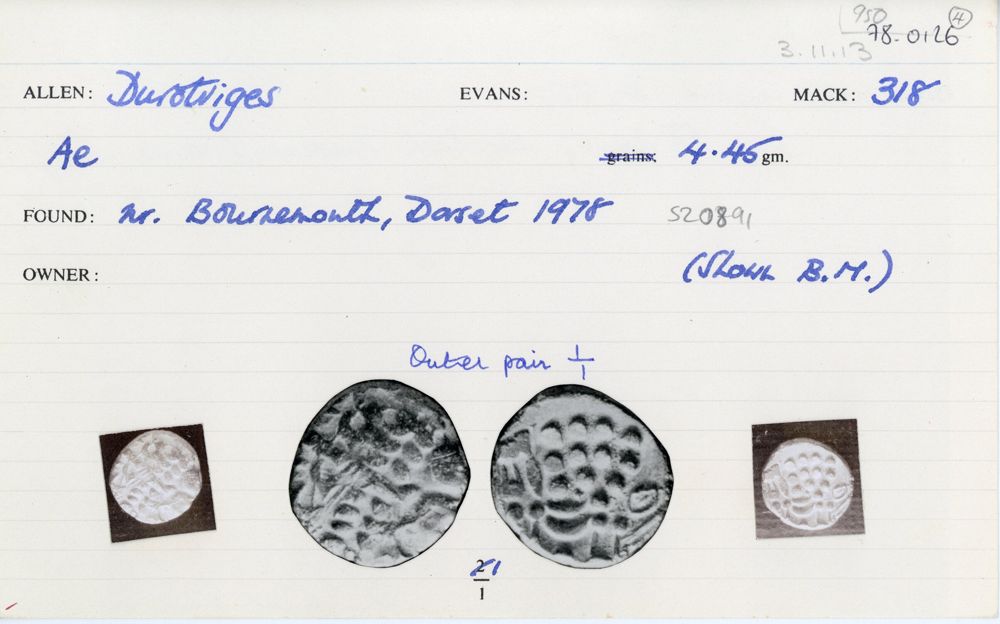 950 4
78.0126
3.11.13
ALLEN: Durotriges EVANS: MACK: 318
Ae grains: 4.45 gm.
FOUND: nr. Bournemouth, Dorset 1978 520891
OWNER: (Shown B.M.)
Outer pair 1/1
1